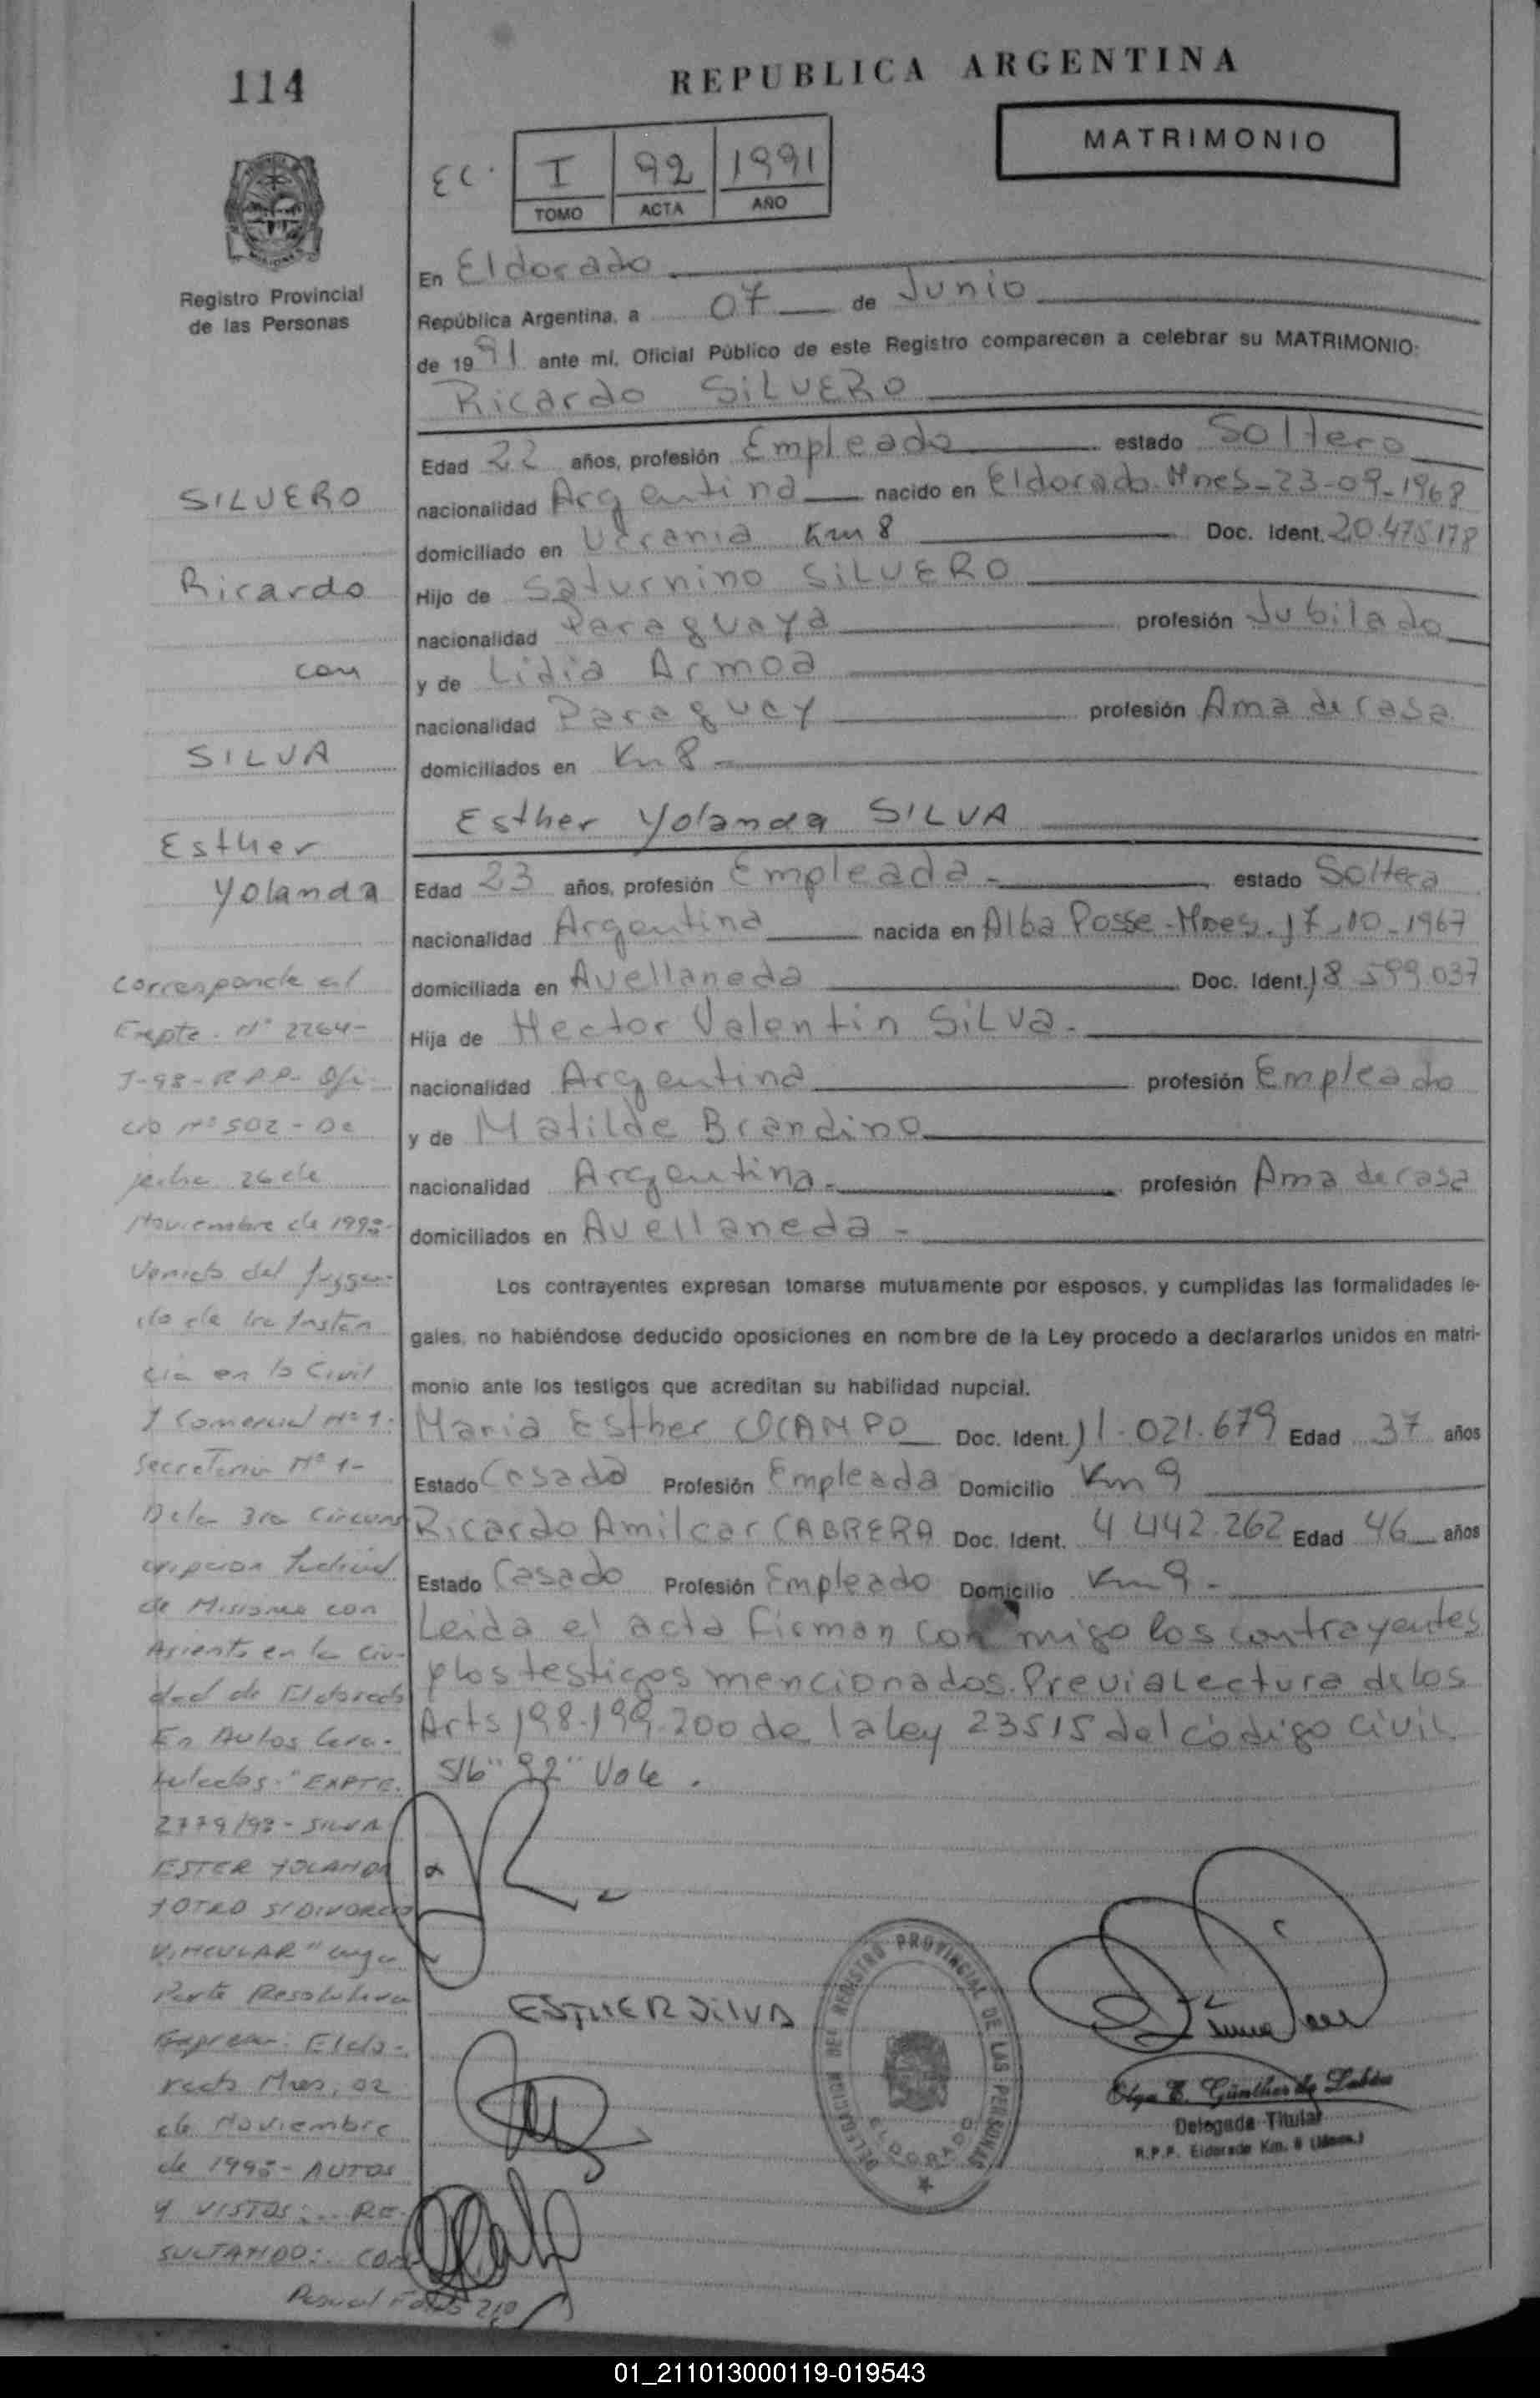 114
REPUBLICA ARGENTINA
MATRIMONIO
Ec. I 92 1991
TOMO ACTA AÑO
Registro Provincial
de las Personas
En Eldorado
República Argentina, a 07 de Junio
de 1991 ante mí, Oficial Público de este Registro comparecen a celebrar su MATRIMONIO:
Ricardo SILVERO
Edad 22 años, profesión Empleado estado Soltero
nacionalidad Argentina nacido en Eldorado. Mnes-23-09-1968
domiciliado en Ucrania Km 8 Doc. Ident. 20.475.178
Hijo de Saturnino SILVERO
nacionalidad Paraguaya profesión Jubilado
y de Lidia Armoa
nacionalidad Paraguay profesión Ama de casa
domiciliados en Km 8
Esther Yolanda SILVA
Edad 23 años, profesión Empleada - estado Soltera
nacionalidad Argentina nacida en Alba Posse-Mnes. 17-10-1967
domiciliada en Avellaneda Doc. Ident. 18 599.037
Hija de Hector Valentin SILVA.
nacionalidad Argentina profesión Empleado
y de Matilde Brandino
nacionalidad Argentina. profesión Ama de casa
domiciliados en Avellaneda -
Los contrayentes expresan tomarse mutuamente por esposos, y cumplidas las formalidades le-
gales, no habiéndose deducido oposiciones en nombre de la Ley procedo a declararlos unidos en matri-
monio ante los testigos que acreditan su habilidad nupcial.
Maria Esther OCAMPO Doc. Ident. 11.021.679 Edad 37 años
Estado Casada Profesión Empleada Domicilio Km 9
Ricardo Amilcar CABRERA Doc. Ident. 4.442.262 Edad 46 años
Estado Casado Profesión Empleado Domicilio Km 9 -
Leida el acta firman con migo los contrayentes
y los testigos mencionados. Previa Lectura de los
Arts 198.199.200 de la ley 23515 del código civil
S/b "92" Vale.
SILVERO
Ricardo
con
SILVA
Esther
Yolanda
Corresponde al
Expte. N° 2264-
J-98-RPP- Ofi-
cio N° 502 - De
fecha 26 de
Noviembre de 1998-
Venido del Juzga-
do de 1ra Instan
cia en lo Civil
y Comercial N° 1.
Secretaria N° 1-
De la 3ra Circuns
cripcion Judicial
de Misiones con
Asiento en la Ciu-
dad de Eldorado
En Autos Cara-
tulados: "EXPTE.
2779/98 - SILVA
ESTER YOLANDA
Y OTRO S/DIVORCIO
VINCULAR" cuya
Parte Resolutiva
Expresa: Eldo-
rado Mnes, 02
de Noviembre
de 1998- AUTOS
Y VISTOS:.. RE-
SULTANDO:. CON
Folio 210
ESTHER SILVA
DELEGACION DEL REGISTRO PROVINCIAL DE LAS PERSONAS
ELDORADO
Olga E. Günther de
Delegada Titular
R.P.P. Eldorado Km. 8 (Mnes.)
01_211013000119-019543